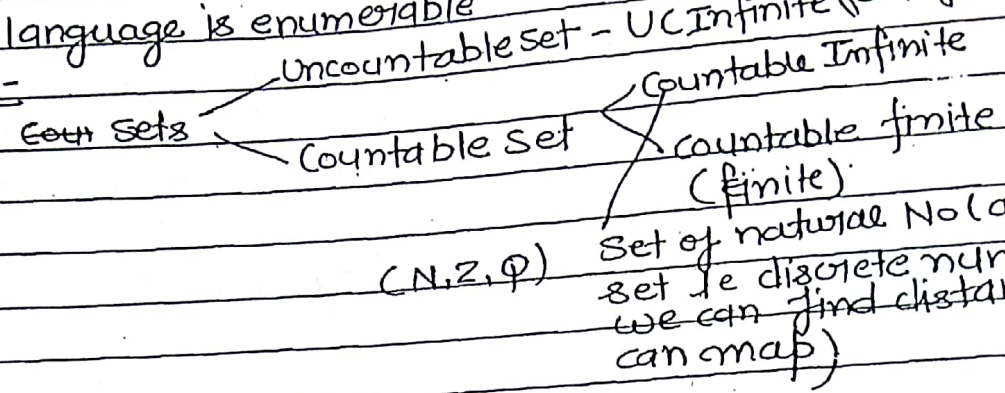 language is enumerable
Uncountable set - UC Infinite
Countable Infinite
sets
Countable set
countable finite
(finite)
(N, Z, Q)
Set of natural No
set Ie discrete
we can find
can map)